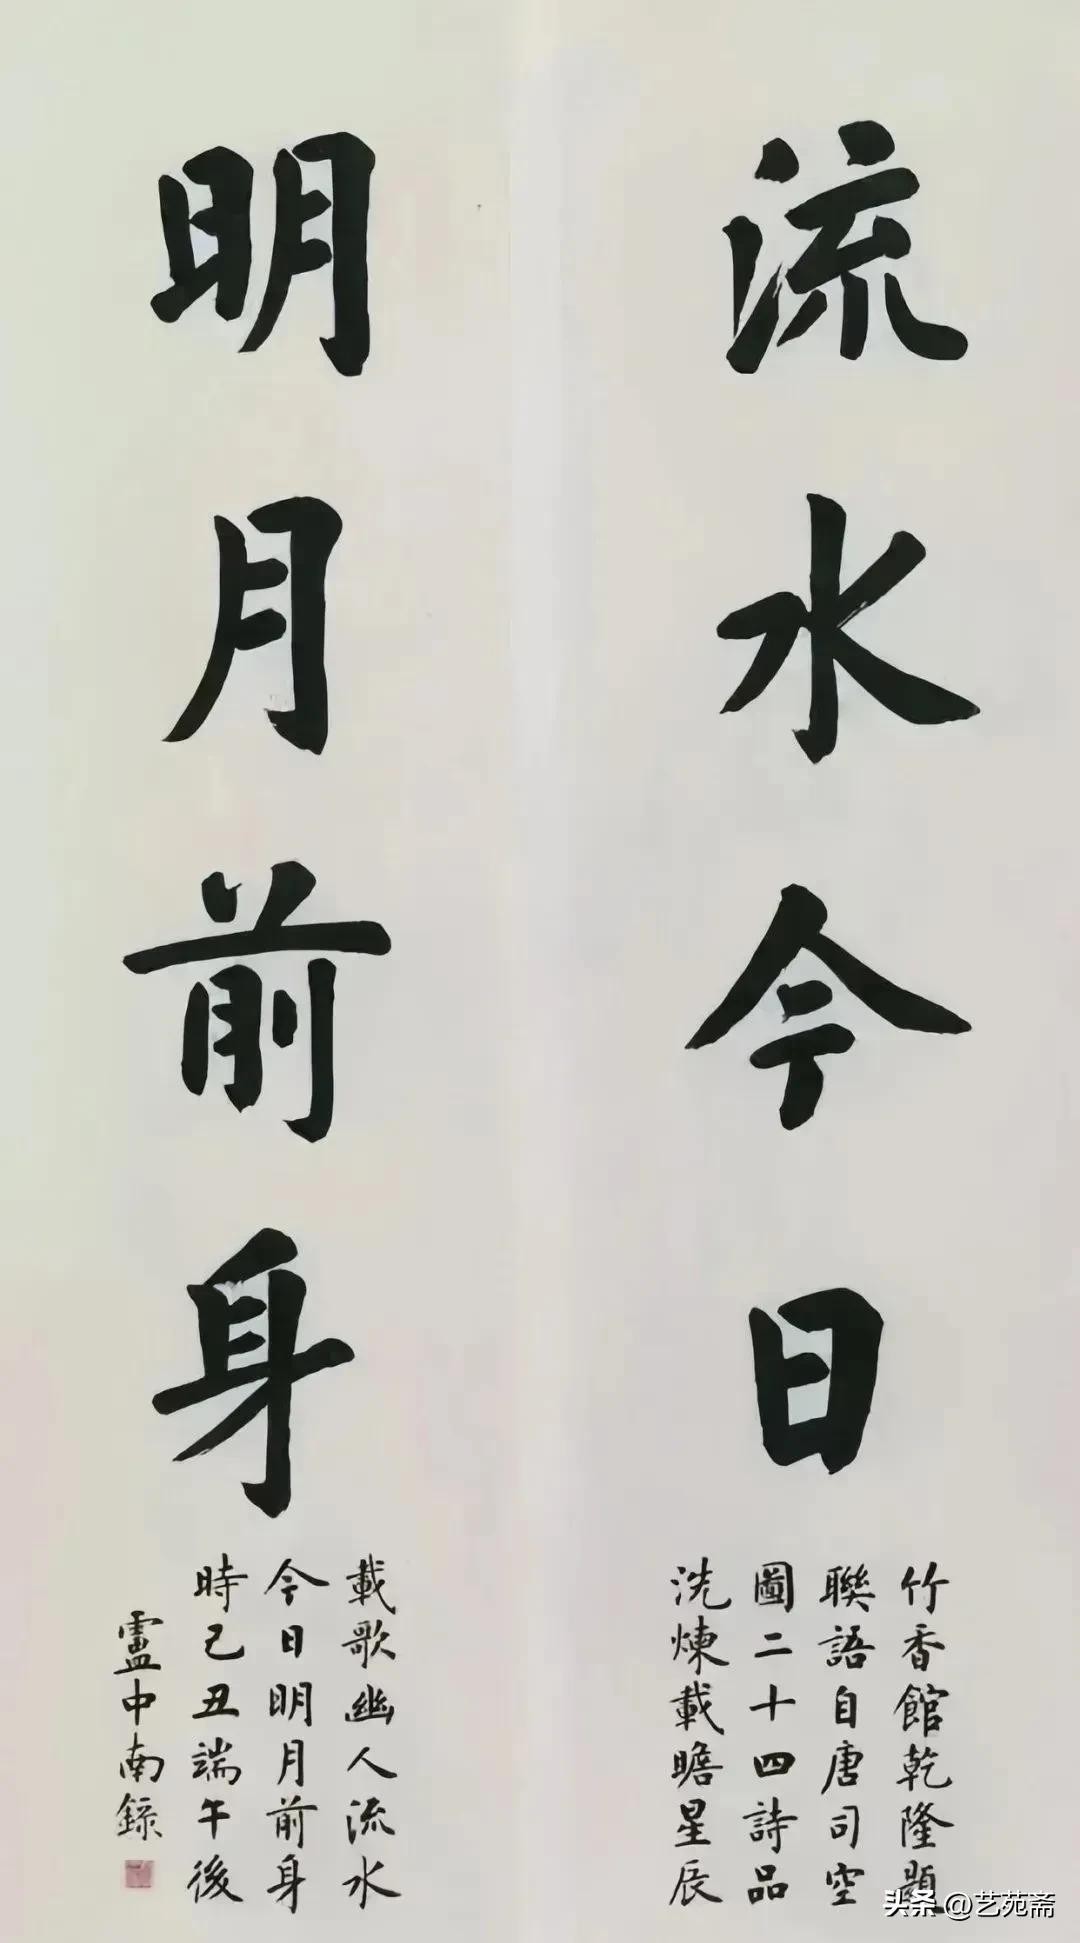 流水今日
明月前身
竹香館乾隆題
聯語自唐司空
圖二十四詩品
洗煉載瞻星辰
載歌幽人流水
今日明月前身
時己丑端午後
盧中南錄
头条 @艺苑斋